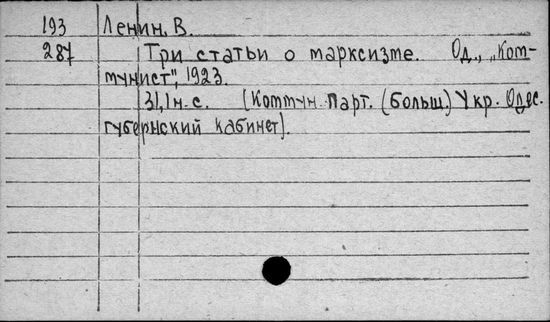 193 Ленин, В.
287 Три статьи о марксизме. Од., „Ком-
мунист", 1923.
31,1н.с. (Коммун. Парт. (больш.) Укр. Одес.
губернский кабинет).